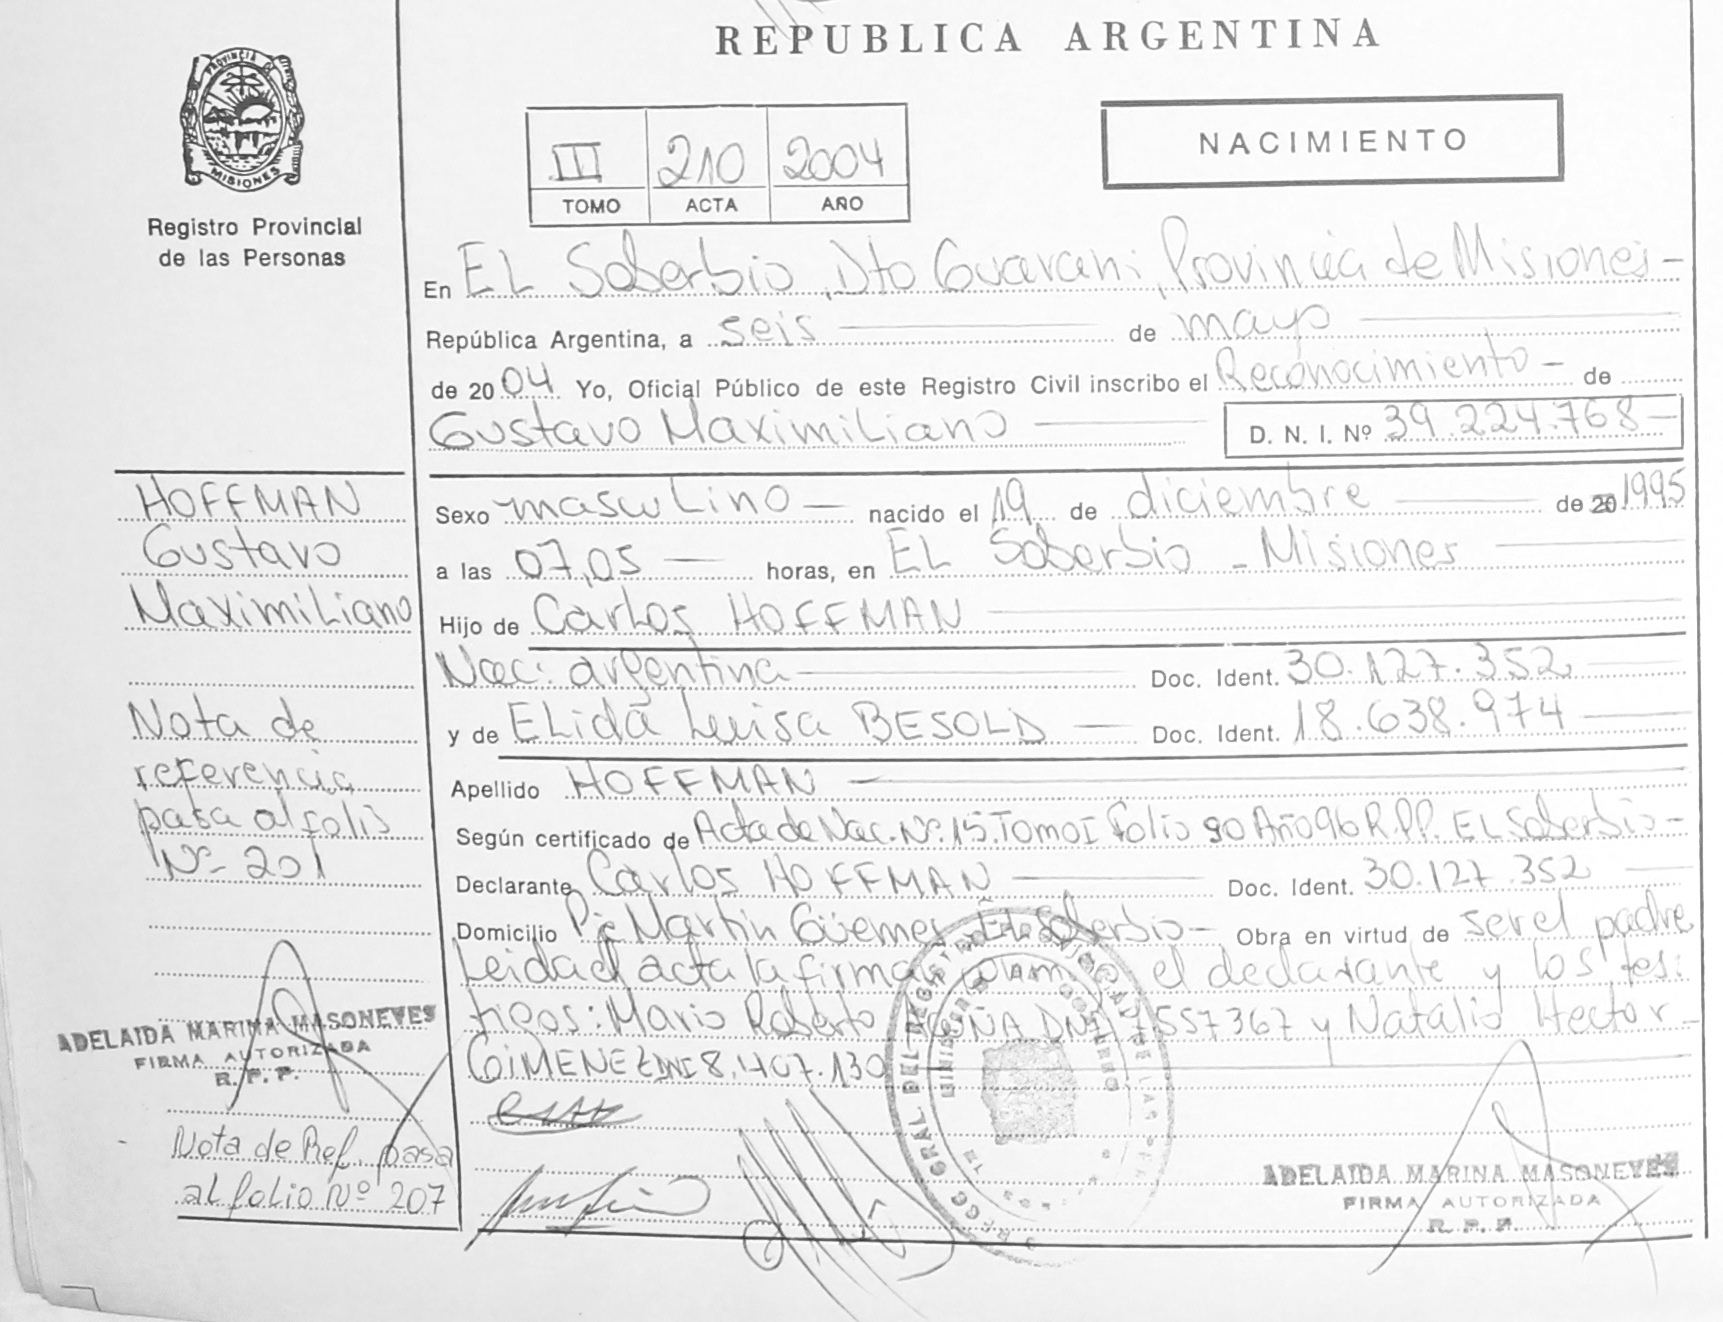 REPUBLICA ARGENTINA
PROVINCIA DE
MISIONES
Registro Provincial
de las Personas
III 210 2004
TOMO ACTA AÑO
NACIMIENTO
En EL Soberbio, Dto Guarani, Provincia de Misiones-
República Argentina, a seis de mayo
de 2004 Yo, Oficial Público de este Registro Civil inscribo el Reconocimiento - de
Gustavo Maximiliano D. N. I. Nº 39.224.768-
HOFFMAN
Gustavo
Maximiliano
Nota de
referencia
pasa al folio
Nº- 201
ADELAIDA MARINA MASONEVES
FIRMA AUTORIZADA
R. P. P.
Nota de Ref. pasa
al folio Nº 207
Sexo masculino nacido el 19 de diciembre de 20 1995
a las 07,05 horas, en EL Soberbio - Misiones
Hijo de Carlos HOFFMAN
Nac: argentina Doc. Ident. 30.127.352
y de ELida Luisa BESOLD Doc. Ident. 18.638.974
Apellido HOFFMAN
Según certificado de Acta de Nac. Nº 15. Tomo I folio 90 Año 96 R.P.P. EL Soberbio-
Declarante Carlos HOFFMAN Doc. Ident. 30.127.352
Domicilio Pje Martin Güemes EL Soberbio- Obra en virtud de ser el padre
Leida el acta la firma el declarante y los tes:
tigos: Mario Roberto DNI 7557367 y Natalio Hector-
GIMENEZ DNI 8.407.130
ADELAIDA MARINA MASONEVES
FIRMA AUTORIZADA
R. P. P.